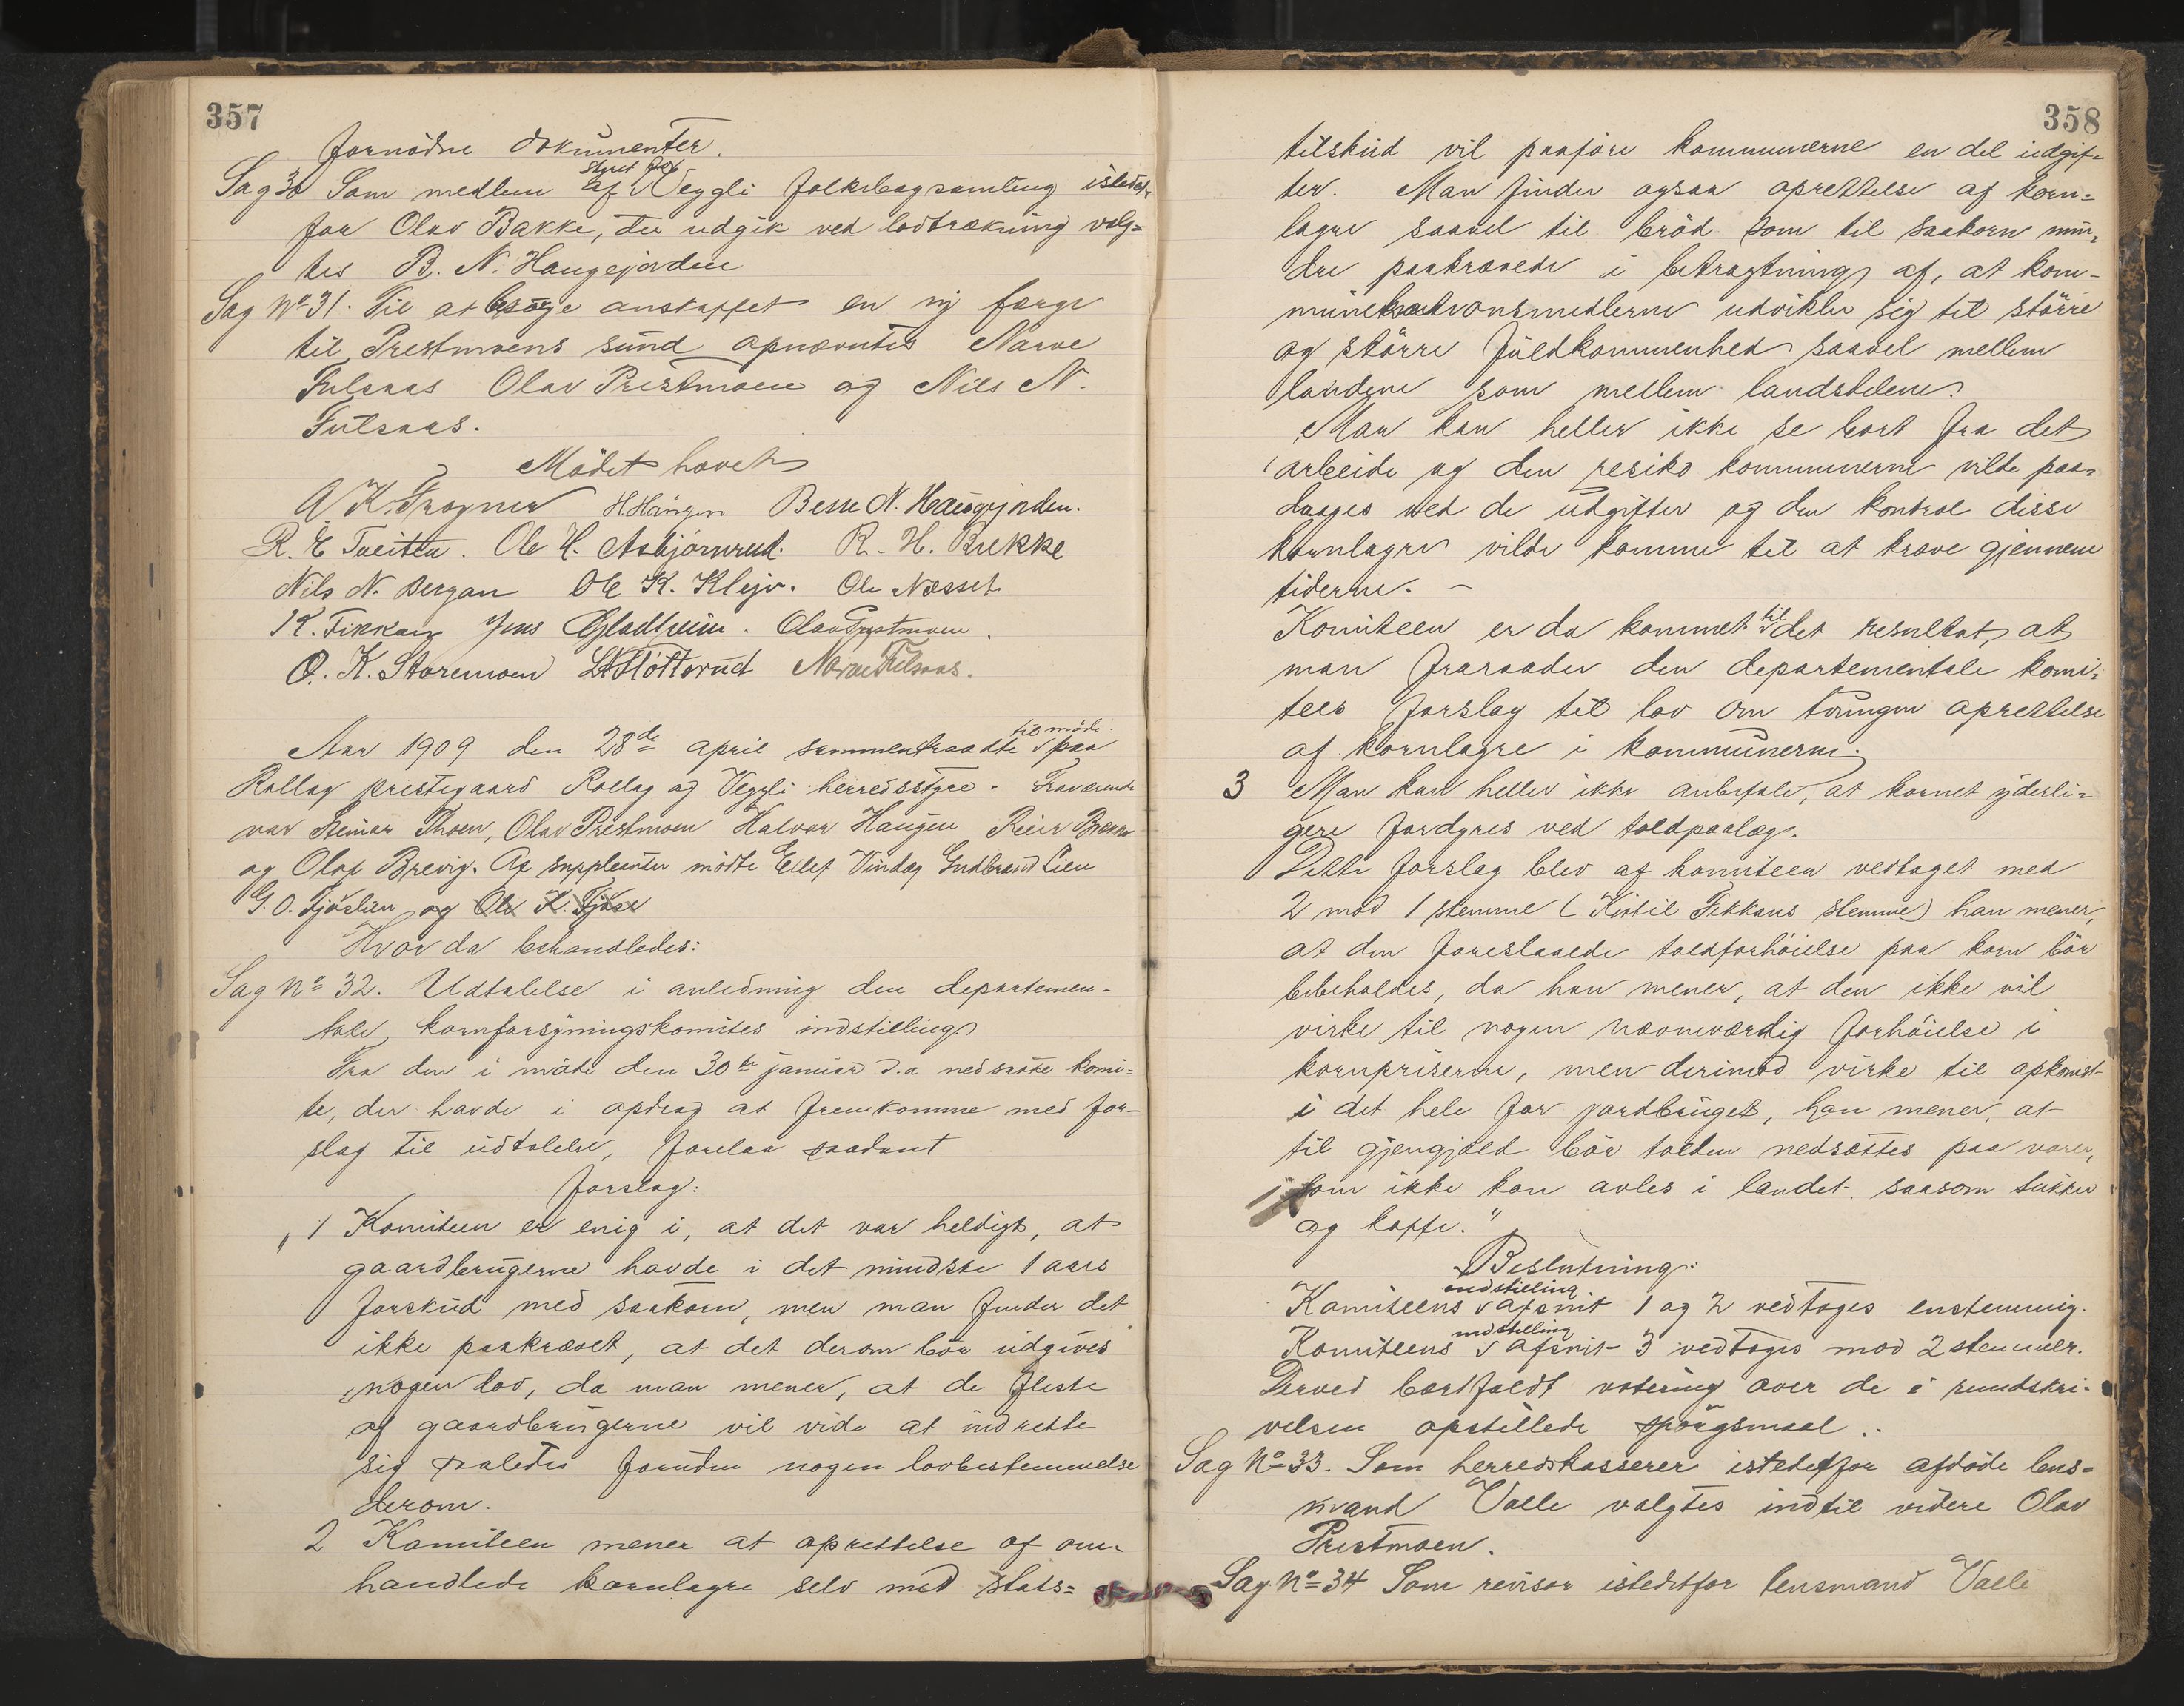 357
fornødne dokumenter.
styret for
Sag 30 Som medlem af Veggli folkebogsamling istedet-
for Olav Bakke, der udgik ved lodtrækning valg=
tes B. N. Haugejorden
Sag No 31. Til at besørge anskaffet en ny færge
til Prestmoens sund opnævntes Narve
Fulsaas Olav Prestmoen og Nils N.
Fulsaas.
Mødet hævet
A. K. Trogner H. Haugen Besse N. Haugejorden.
R. E. Tveiten. Ole H. Asbjørnrud. R. H. Brekke
Nils N. Bergan Ole K. Klejv. Ole Næsset
K. Fikkan Jens Gladheim. Olav Prestmoen.
O. K. Storemoen Sløtterud Narve Fulsaas.
til møde
Aar 1909 den 28de april sammentraadte paa
Rollag prestegaard Rollag og Veggli herredsstyre. Fraværende
var Steinar Thoen, Olav Prestmoen Halvor Haugen Reier Brekke
og Olaf Brevig. Af suppleanter mødte Ellef Vindeg Gudbrand Lien
G. O. Fjøslien og Ole K. Fjøse
Hvor da behandledes:
Sag No 32. Udtalelse i anledning den departemen-
tale kornforsyningskomites indstilling
Fra den i møde den 30te januar d.a nedsatte komi=
te, der havde i opdrag at fremkomme med for-
slag til udtalelse, forelaa saadant
forslag:
„1 Komiteen er enig i, at det var heldigt, at
gaardbrugerne havde i det mindste 1 aars
forskud med saakorn, men man finder det
ikke paakrævet, at det derom bør udgives
nogen lov, da man mener, at de fleste
af gaardbrugerne vil vide at indrette
sig saaledes foruden nogen lovbestemmelse
derom.
2 Komiteen mener at oprettelse af om-
handlede kornlagre selv med stats=
358
tilskud vil paaføre kommunerne en del udgif-
ter. Man finder ogsaa oprettelse af korn=
lagre saavel til brød som til saakorn min=
dre paakrævede i betragtning af, at kom-
munikationsmidlerne udvikler sig til større
og større fuldkommenhed saavel mellem
landene som mellem landsdelene.
Man kan heller ikke se bort fra det
arbeide og den resiko kommunerne vilde paa=
drages ved de udgifter og den kontrol disse
kornlagre vilde komme til at kræve gjennem
tiderne. -
til
Komiteen er da kommet det resultat, at
man fraraader den departementale komi=
tees forslag til lov om tvungen oprettelse
af kornlagre i kommunerne.
3 Man kan heller ikke anbefale, at kornet yderli=
gere fordyres ved toldpaalæg.
Dette forslag blev af komiteen vedtaget med
2 mod 1 stemme (Kittil Fikkans stemme) han mener,
at den foreslaaede toldforhøielse paa korn bør
bibeholdes, da han mener, at den ikke vil
virke til nogen nævneværdig forhøielse i
kornpriserne, men derimod virke til opkomst
i det hele for jordbruget, han mener, at
til gjengjæld bør tolden nedsættes paa varer,
som ikke kan avles i landet, saasom sukker
og kaffe."
Beslutning:
indstilling
Komiteens afsnit 1 og 2 vedtoges enstemmig.
indstilling
Komiteens afsnit 3 vedtoges mod 2 stemmer.
Derved bortfaldt votering over de i rundskri-
velsen opstillede spørgsmaal..
Sag No 33. Som herredskasserer istedetfor afdøde lens=
mand Valle valgtes indtil videre Olav
Prestmoen.
Sag No 34 Som revisor istedetfor lensmand Valle